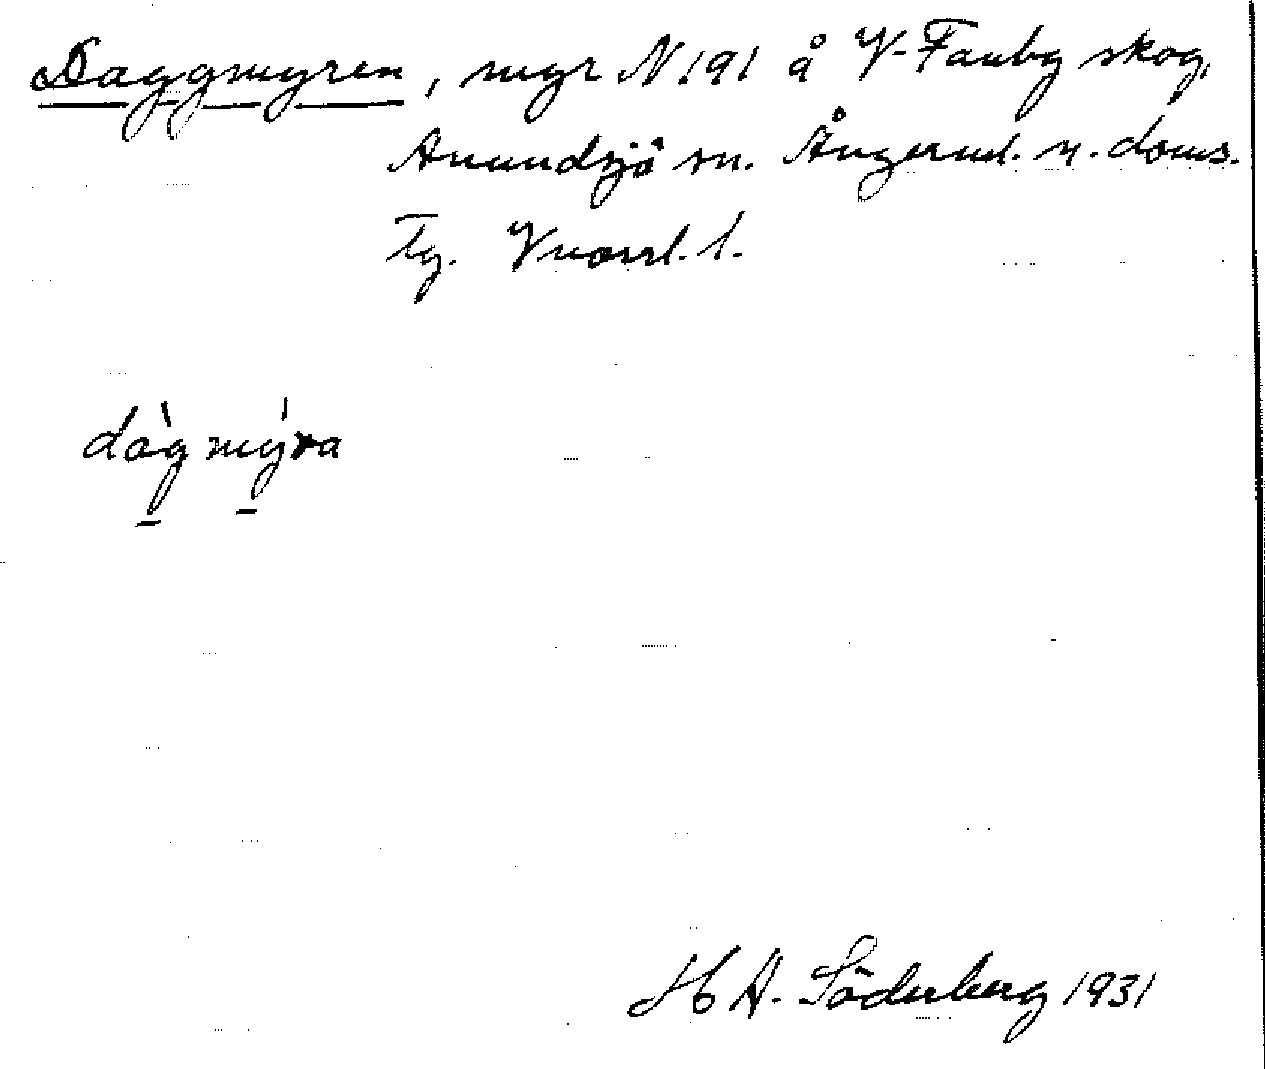 Daggmyren, myr N. 191 å V. Fanbg skog,
Anundsjö sn. Ångerml. n. doms.
Tg.
dàgmýra
H A. Söderberg 1931